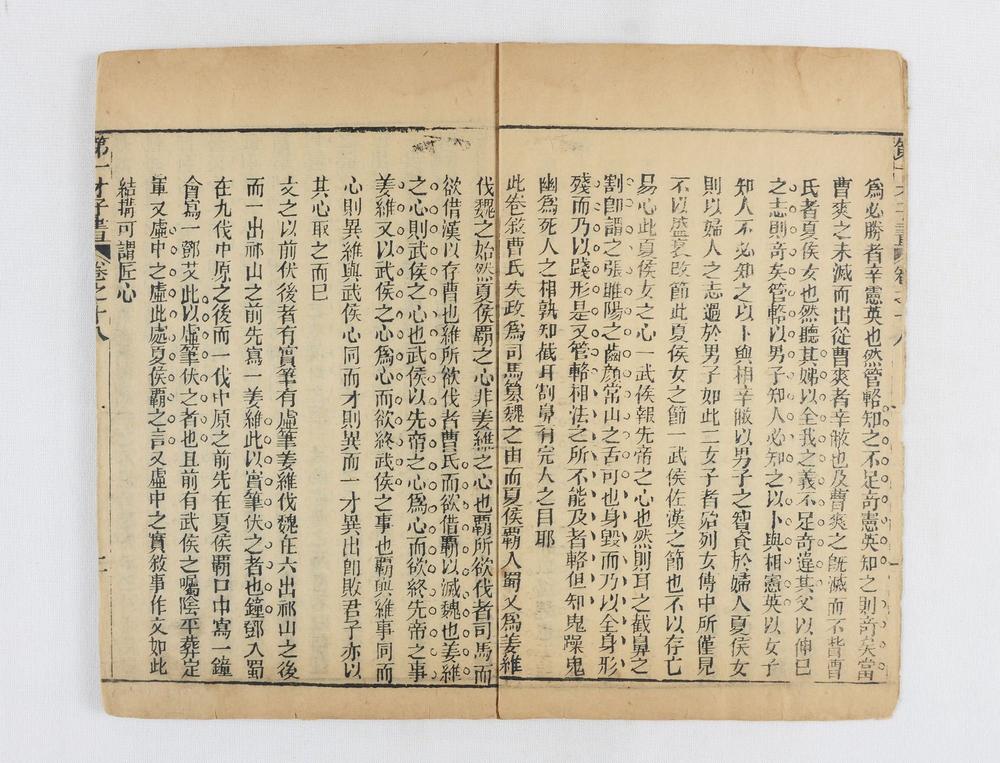 為必勝者辛憲英也然管輅知之不足奇憲英知之則奇矣當
曹爽之未滅而出從曹爽者辛敞也及曹爽之既滅而不背曹
氏者夏侯女也然聽其姊以全我之義不足奇違其父以伸己
之志則奇矣管輅以男子知人必知之以卜與相憲英以女子
知人不必知之以卜與相辛敞以男子之智資於婦人夏侯女
則以婦人之志過於男子如此二女子者殆列女傳中所僅見
不以盛衰改節此夏侯女之節一武侯佐漢之節也不以存亡
易心此夏侯女之心一武侯報先帝之心也然則耳之截鼻之
割卽謂之張睢陽之齒顏常山之舌可也身毀而乃以全身形
殘而乃以踐形是又管輅相法之所不能及者輅但知鬼躁鬼
幽為死人之相孰知截耳割鼻有完人之目耶
此卷敘曹氏失政為司馬篡魏之由而夏侯霸入蜀又為姜維
伐魏之始然夏侯霸之心非姜維之心也霸所欲伐者司馬而
欲借漢以存曹也維所欲伐者曹氏而欲借霸以滅魏也姜維
之心則武侯之心也武侯以先帝之心為心而欲終先帝之事
姜維又以武侯之心為心而欲終武侯之事也霸與維事同而
心則異維與武侯心同而才則異而一才異出卽敗君子亦以
其心取之而已
文之以前伏後者有實筆有虛筆姜維伐魏在六出祁山之後
而一出祁山之前先寫一姜維此以實筆伏之者也鐘鄧入蜀
在九伐中原之後而一伐中原之前先在夏侯霸口中寫一鐘
會寫一鄧艾此以虛筆伏之者也且前有武侯之囑陰平葬定
軍又虛中之虛此處夏侯霸之言又虛中之實敘事作文如此
結搆可謂匠心
第一才子書
卷之十八